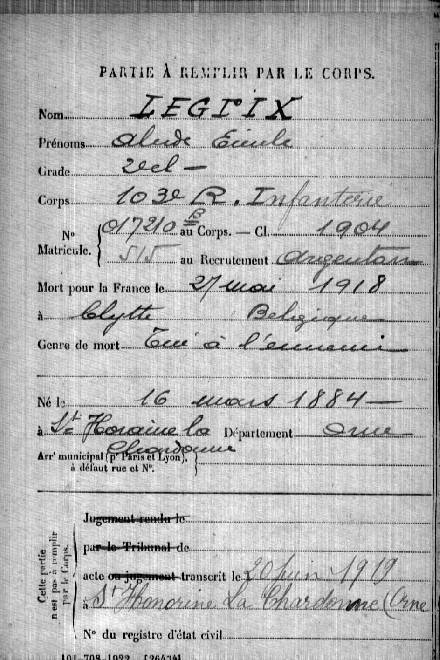 PARTIE À REMPLIR PAR LE CORPS.
Nom LEGRIX
Prénoms Emile
Grade 2e cl —
Corps 103e R. Infanterie
Nº Matricule. { 017210 au Corps. — Cl. 1904
515 au Recrutement Argentan
Mort pour la France le 27 mai 1918
à Clytte Belgique
Genre de mort Tué à l'ennemi
Né le 16 mars 1884 —
à St Honorine la Chardonne Département Orne
Arrt municipal (pr Paris et Lyon), à défaut rue et Nº.
Cette partie n'est pas à remplir par le Corps.
Jugement rendu le
par le Tribunal de
acte ou jugement transcrit le 20 juin 1919
à St Honorine La Chardonne (Orne
Nº du registre d'état civil